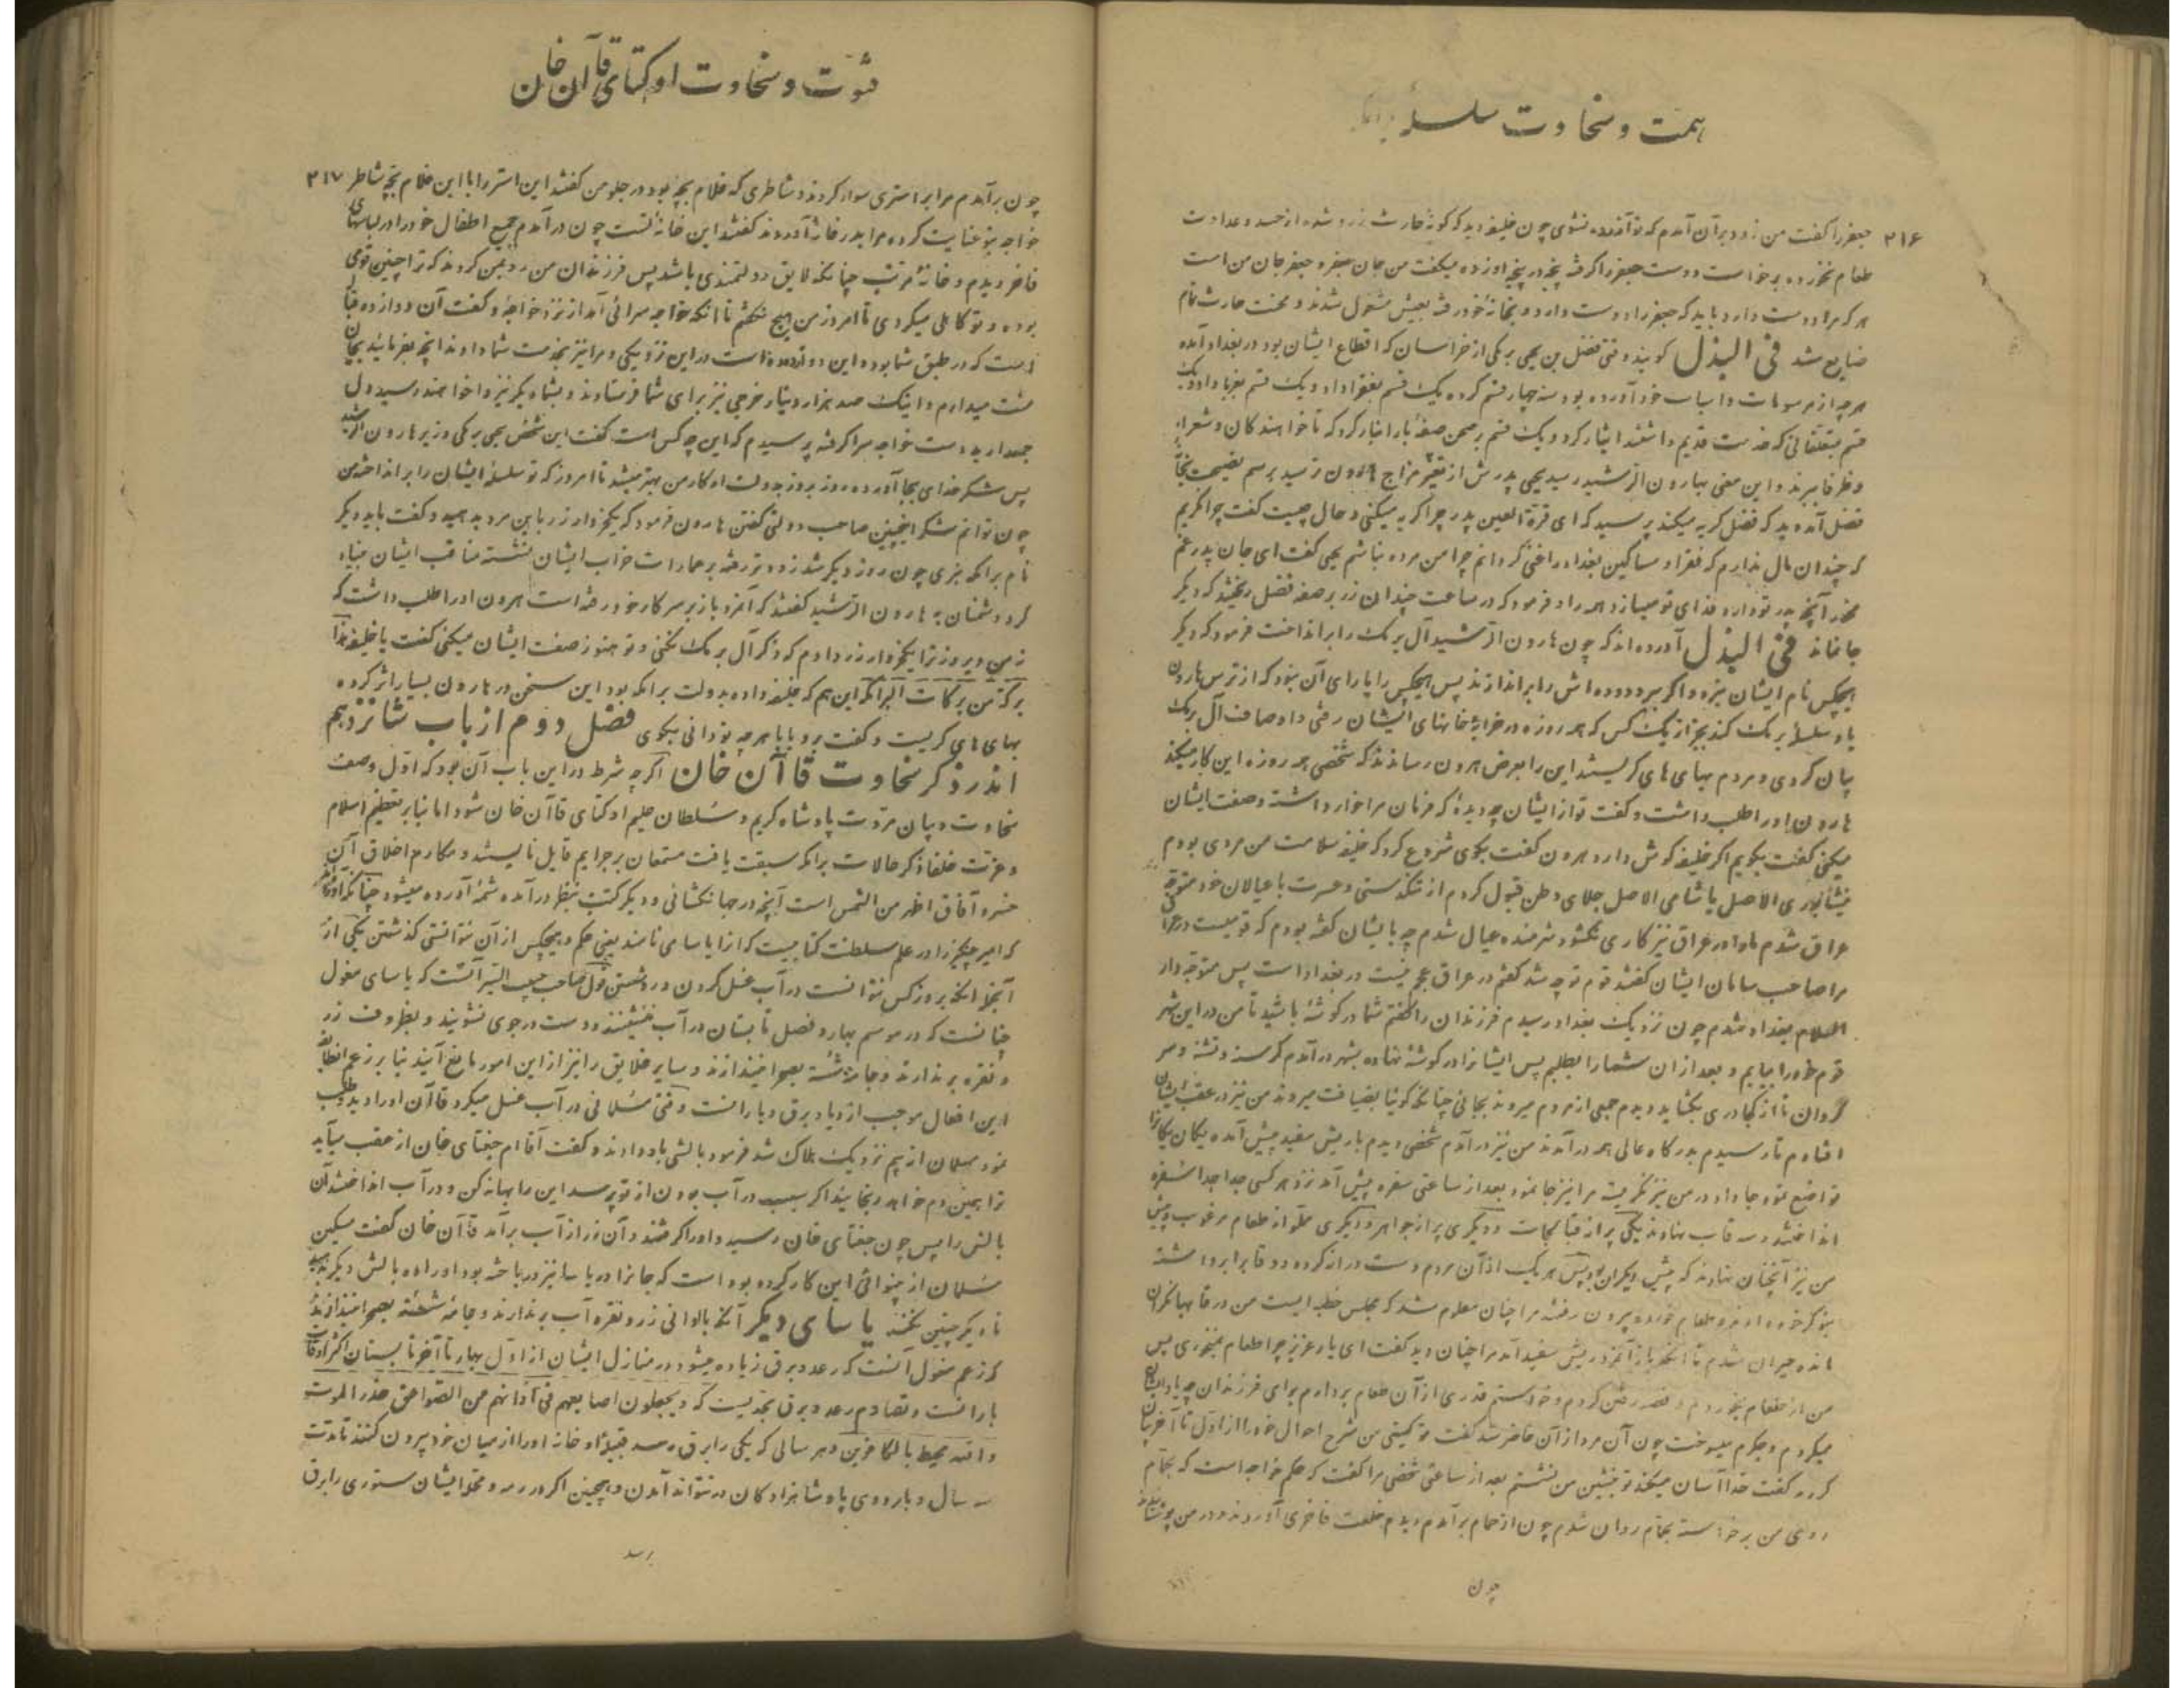 همت و سخاوت سلسلهٔ
۳۱۶ جعفر را گفت من زود برآن آمدم که تو آزرده نشوی چون خلیفه دید که کونهٔ حارث زرد شده از حسد و عداوت
طعام نخورده برخواست و دست جعفر را کرفته پنجه در پنجه او زده میکفت من جان جعفر و جعفر جان من است
هر که مرا دوست دارد باید که جعفر را دوست دارد و بخانهٔ خود رفته بعیش مشغول شدند و محنت حارث تمام
ضایع شد فی البذل کویند وقتی فضل بن یحیی برمکی از خراسان که اقطاع ایشان بود در بغداد آمده
هر چه از مرسومات و اسباب خود آورده بود سه چهار قسم کرده یک قسم بفقرا داد و یک قسم بغربا داد و یک
قسم بمتعلقانی که خدمت قدیم داشتند ایثار کرد و یک قسم بر صحن صفهٔ بار انبار کرد که تا خواهندکان و شعرا و
ظرفا ببرند و این معنی بهارون الرشید رسید یحیی پدرش از تغیر مزاج هارون ترسید برسم نصیحت بخانهٔ
فضل آمد دید که فضل کریه میکند پرسید که ای قرة العین پدر چرا کریه میکنی و حال چیست کفت چرا نکریم
که چندان مال ندارم که فقرا و مساکین بغداد را غنی کردانم چرا من مرده نباشم یحیی کفت ای جان پدر غم
مخور آنچه پدر تو دارد فدای تو میسازد همه را و فرمود که در ساعت چندان زر بر صفه فضل ریختند که دیکر
جا نماند فی البذل آورده اند که چون هارون الرشید آل برمک را برانداخت فرمود که دیکر
هیچکس نام ایشان نبرد و اکر ببرد دوده اش را براندازند پس هیچکس را یارای آن نبود که از ترس هارون
یاد سلسلهٔ برمک کند بجز از یک کس که همه روزه در خرابهٔ خانهای ایشان رفتی و اوصاف آل برمک
بیان کردی و مردم بهای های کریستند این را بعرض هارون رساندند که شخصی همه روزه این کار میکند
هارون او را طلب داشت و کفت تو از ایشان چه دیدهٔ که فرمان مرا خوار داشته و صفت ایشان
میکنی کفت بکویم اکر خلیفه کوش دارد هارون کفت بکوی شروع کرد که خلیفه سلامت من مردی بودم
نیشاپوری الاصل یا شامی الاصل جلای وطن قبول کردم از تنکدستی و عسرت با عیالان خود متوجه
عراق شدم ماه در عراق نیز کاری نکشود شرمنده عیال شدم چه بایشان کفته بودم که قومیست در عراق
مرا صاحب سامان ایشان کفتند قوم تو چه شد کفتم در عراق عجم نیست در بغداد است پس متوجه دار
السلام بغداد شدم چون نزدیک بغداد رسیدم فرزندان را کفتم شما در کوشهٔ باشید تا من در این شهر
قوم خود را بیابم و بعد از آن شما را بطلبم پس ایشانرا در کوشهٔ نهاده بشهر درآمدم کرسنه و تشنه و سر
کردان تا از کجا دری بکشاید دیدم جمعی از مردم میروند بجائی چنانکه کوئیا بضیافت میروند من نیز در عقب ایشان
افتادم تا رسیدم بدرکاه عالی همه درآمدند من نیز درآمدم شخصی دیدم با ریش سفید پیش آمده یکان یکانرا
تواضع نمود و جا داد و در من نیز نکریست مرا نیز جا نمود بعد از ساعتی سفره پیش آمد نزد هر کسی جدا جدا سفره
انداختند و سه قاب نهادند یکی پر از و دیکری پر از جواهر و دیکری مملو از طعام مرغوب و پیش
من نیز آنچنان نهادند که پیش دیکران بود پس هر یک از آن مردم دست دراز کرده دو قاب را برداشته
بنوکر خود دادند و طعام خورده بیرون رفتند مرا چنان معلوم شد که مجلس خطبه ایست من در قابها نکران
مانده حیران شدم تا آنکه باز آنمرد ریش سفید آمد مرا چنان دید کفت ای یار عزیز چرا طعام نمیخوری پس
من از طعام بخوردم و قصد رفتن کردم و خواستم قدری از آن طعام بردارم برای فرزندان چه یاد ایشان
میکردم و جکرم میسوخت چون آن مرد از آن حاضر شد کفت تو کیستی من شرح احوال خود را از اول تا آخر بیان
کردم کفت خدا آسان میکند تو بنشین من نشستم بعد از ساعتی شخصی مرا کفت که حکم خواجه است که بحمام
روی من برخواسته بحمام روان شدم چون از حمام برآمدم دیدم خلعت فاخری آوردند و در من پوشانیدند
چون
فتوت و سخاوت اوکتای قاآن خان
چون برآمدم مرا بر استری سوار کردند و شاطری که غلام بچه بود در جلو من کفتند این استر را با این غلام بچه شاطر ۳۱۷
خواجه بتو عنایت کرده مرا بدر خانهٔ آوردند کفتند این خانهٔ تست چون درآمدم جمیع اطفال خود را در لباسهای
فاخر دیدم و خانهٔ مرتب چنانکه لایق دولتمندی باشد پس فرزندان من رو بمن کردند که ترا چنین قومی
بوده و تو کاهلی میکردی تا امروز من هیچ نکفتم تا آنکه خواجه سرائی آمد از نزد خواجه و کفت آن دوازده قباله
است که در طبق شما بوده و این دوازده ده است در این نزدیکی و مرا نیز بخدمت شما دادند آنچه بفرمائید بجان
منت میدارم و اینک صد هزار دینار خرجی نیز برای شما فرستادند و بشما دیکر نیز وا خواهند رسید دل
جمع دارید دست خواجه سرا کرفته پرسیدم که این چه کس است کفت این شخص یحیی برمکی وزیر هارون الرشید
پس شکر خدای بجا آورده روز بروز بدولت او کار من بهتر میشد تا امروز که تو سلسلهٔ ایشان را برانداختی من
چون توانم شکر اینچنین صاحب دولتی کفتن هارون فرمود که یکخروار زر باین مرد بدهید و کفت باید دیکر
نام برامکه نبری چون روز دیکر شد زودتر رفته بر عمارات خراب ایشان نشسته مناقب ایشان بنیاد
کرد دشمنان به هارون الرشید کفتند که آنمرد باز بر سر کار خود رفته است هارون او را طلب داشت که
من دیروز ترا یکخروار زر دادم که ذکر آل برمک نکنی و تو هنوز صفت ایشان میکنی کفت یا خلیفه هذا
برکة من برکات البرامکه این هم که خلیفه داده بدولت برامکه بود این سخن در هارون بسیار اثر کرده
بهای های کریست و کفت برو بابا هر چه تو دانی بکوی فصل دوم از باب شانزدهم
اندر ذکر سخاوت قاآن خان اکر چه شرط در این باب آن بود که اول وصف
سخاوت و بیان مروت پادشاه کریم و سلطان حلیم اوکتای قاآن خان شود اما بنابر تعظیم اسلام
و عزت خلفا ذکر حالات برامکه سبقت یافت مستمعان بر جرایم قایل نایستند و مکارم اخلاق آن
خسرو آفاق اظهر من الشمس است آنچه در جهانکشائی و دیکر کتب بنظر درآمده شمهٔ آورده میشود چنانکه آورده اند
که امیر چنکیز را در علم سلطنت کتابیست که آنرا یاسامی نامند یعنی حکم و هیچکس از آن نتوانستی کذشتن یکی از
آنجمله آنکه بروز کس نتوانست در آب غسل کردن و رو شستن قول صاحب حبیب السیر آنست که یاسای مغول
چنانست که در موسم بهار و فصل تابستان در آب ننشینند و دست در جوی نشویند و بظروف زر
و نقره برندارند و جامهٔ شسته بصحرا نیندازند و سایر خلایق را نیز از این امور مانع آیند بنابر زعم آنطایفه
این افعال موجب ازدیاد برق و بارانست وقتی مسلمانی در آب غسل میکرد قاآن او را دید طلب
نمود مسلمان از بیم نزدیک هلاک شد فرمود بالشی باو دادند و کفت آقا ام جغتای خان از عقب میآید
ترا همین دم خواهد رنجانید اکر سبب در آب بودن از تو پرسد این را بهانه کن و در آب انداختند آن
بالش را پس چون جغتای خان رسید و او را کرفتند و آن زر از آب برآمد قاآن خان کفت مسکین
مسلمان از بینوائی این کار کرده بود است که جانرا در یاسا نیز درباخته بود او را ده بالش دیکر بدهید
تا دیکر چنین نکنند یاسای دیکر آنکه باوانی زر و نقره آب برندارند و جامه شسته بصحرا نیندازند
که زعم مغول آنست که رعد و برق زیاده میشود در منازل ایشان از اول بهار تا آخر تابستان اکثر اوقات
بارانست و تصادم رعد و برق بحدیست که و یجعلون اصابعهم فی آذانهم من الصواعق حذر الموت
والله محیط بالکافرین و هر سالی که یکی را برق رسد قبیله و خانه او را از میان خود بیرون کنند تا مدت
سه سال و باردوی پادشاهزادکان در نتواند آمدن و همچنین اکر در رمه و کلهٔ ایشان ستوری را برق
رسد